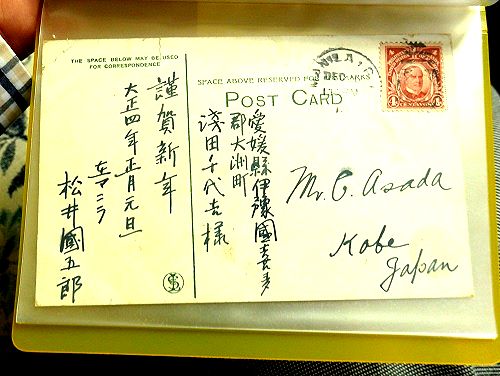 THE SPACE BELOW MAY BE USED
FOR CORRESPONDENCE
SPACE ABOVE RESERVED FOR POSTMARKS
POST CARD
MANILA
DEC
謹賀新年
大正四年正月元旦
在マニラ
松井國五郎
愛媛縣伊豫國喜多
郡大洲町
淺田千代吉様
Mr. C. Asada
Kobe
Japan